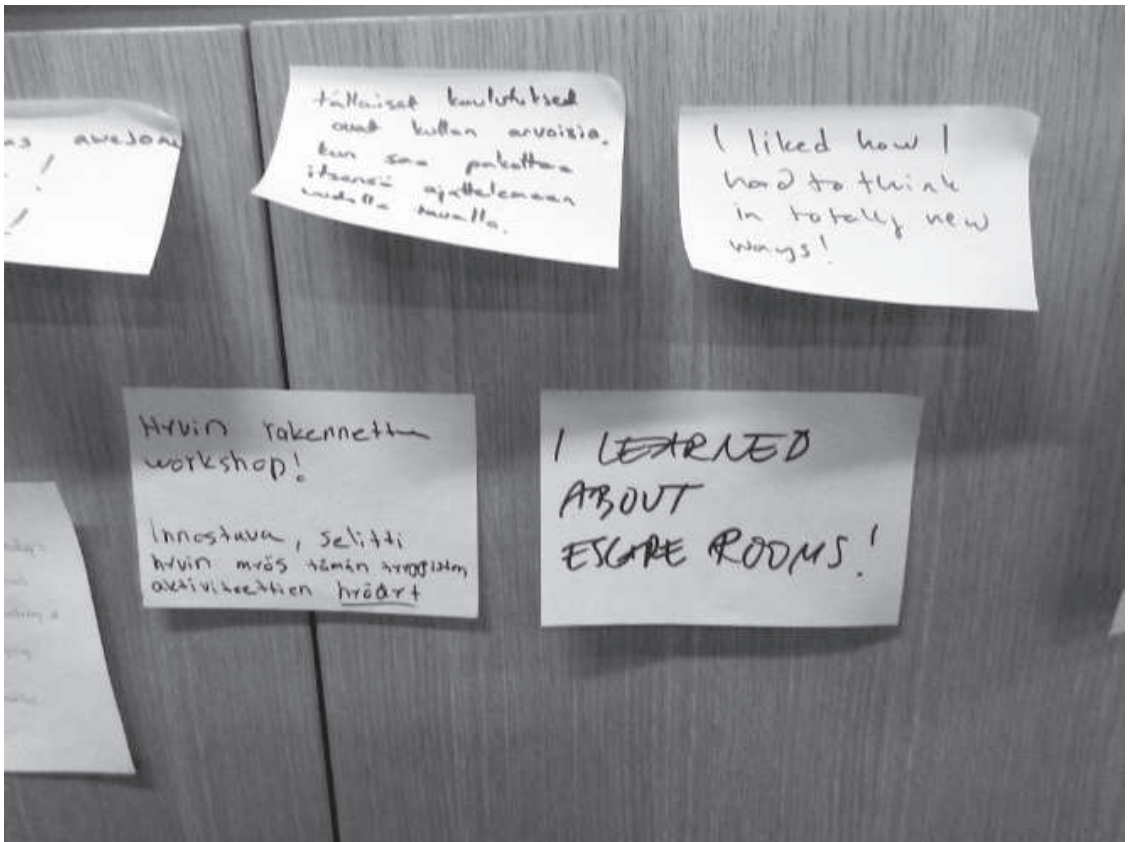 awesome
!
!
tällaiset koulutukset
ovat kullan arvoisia,
kun saa pakottaa
itsensä ajattelemaan
uudella tavalla.
I liked how I
had to think
in totally new
ways!
Hyvin rakennettu
workshop!
Innostava, selitti
hyvin myös tämän tyyppisten
aktiviteettien hyödyt
I LEARNED
ABOUT
ESCAPE ROOMS!